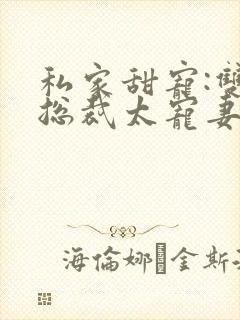 私家甜寵:雙
总裁太寵妻
海倫娜�金斯